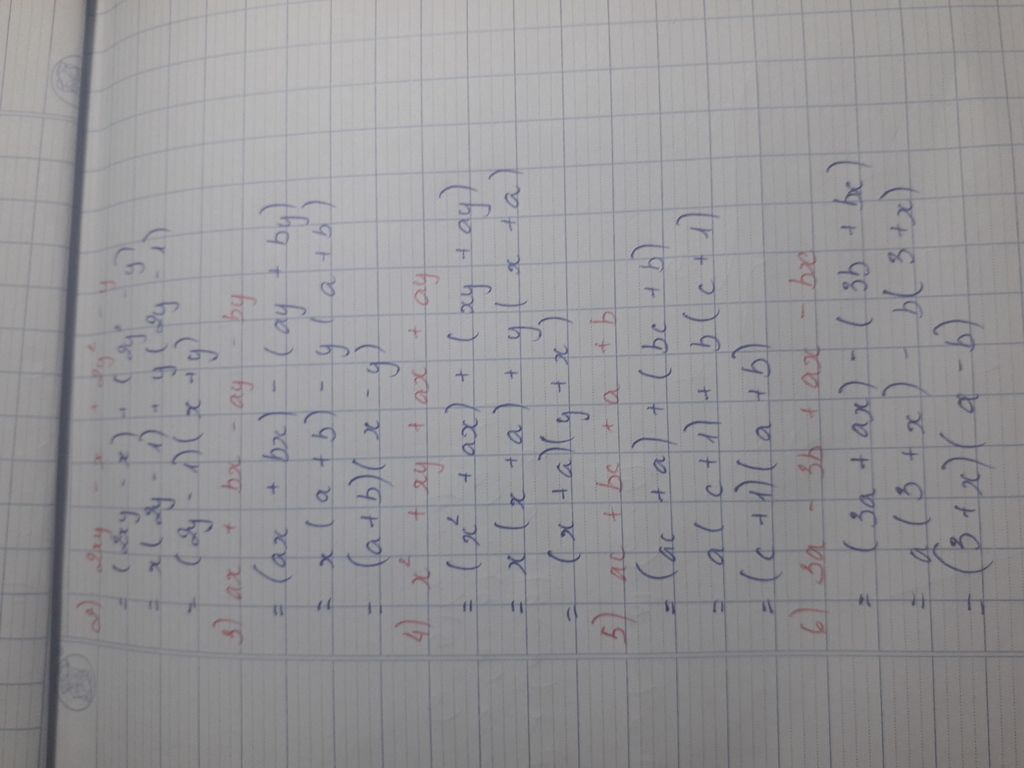 2) 2xy - x + 2y² - y
= (2xy - x) + (2y² - y)
= x(2y - 1) + y(2y - 1)
= (2y - 1)(x + y)
3) ax + bx - ay - by
= (ax + bx) - (ay + by)
= x(a + b) - y(a + b)
= (a+b)(x - y)
4) x² + xy + ax + ay
= (x² + ax) + (xy + ay)
= x(x + a) + y(x + a)
= (x + a)(y + x)
5) ac + bc + a + b
= (ac + a) + (bc + b)
= a(c + 1) + b(c + 1)
= (c + 1)(a + b)
6) 3a - 3b + ax - bx
= (3a + ax) - (3b + bx)
= a(3 + x) - b(3 + x)
= (3 + x)(a - b)